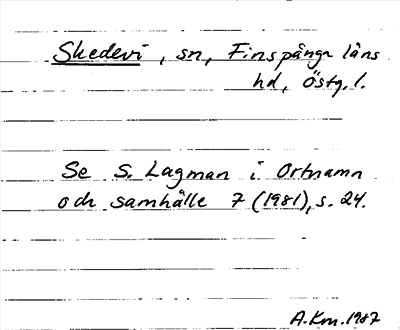 Skedevi, sn, Finspånga läns
hd, Östg. l.
Se S. Lagman i Ortnamn
och samhälle 7 (1981), s. 24.
A.Km.1987